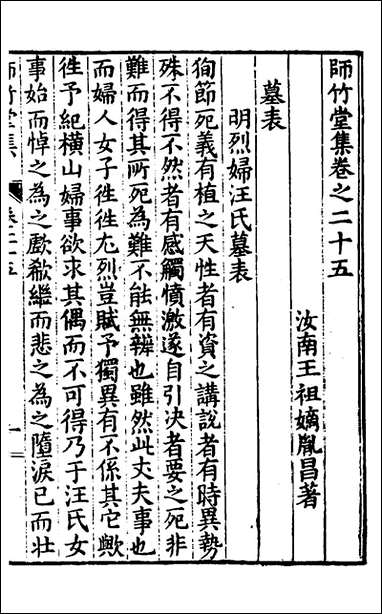 師竹堂集卷之二十五
汝南王祖嫡胤昌著
墓表
明烈婦汪氏墓表
狥節死義有植之天性者有資之講說者有時異勢
殊不得不然者有感觸憤激遂自引决者要之死非
難而得其所死為難不能無辨也雖然此丈夫事也
而婦人女子徃徃尤烈豈賦予獨異有不係其它歟
徃予紀橫山婦事欲求其偶而不可得乃于汪氏女
事始而悼之為之歔欷繼而悲之為之隨淚已而壯
師竹堂集
卷二十五
一